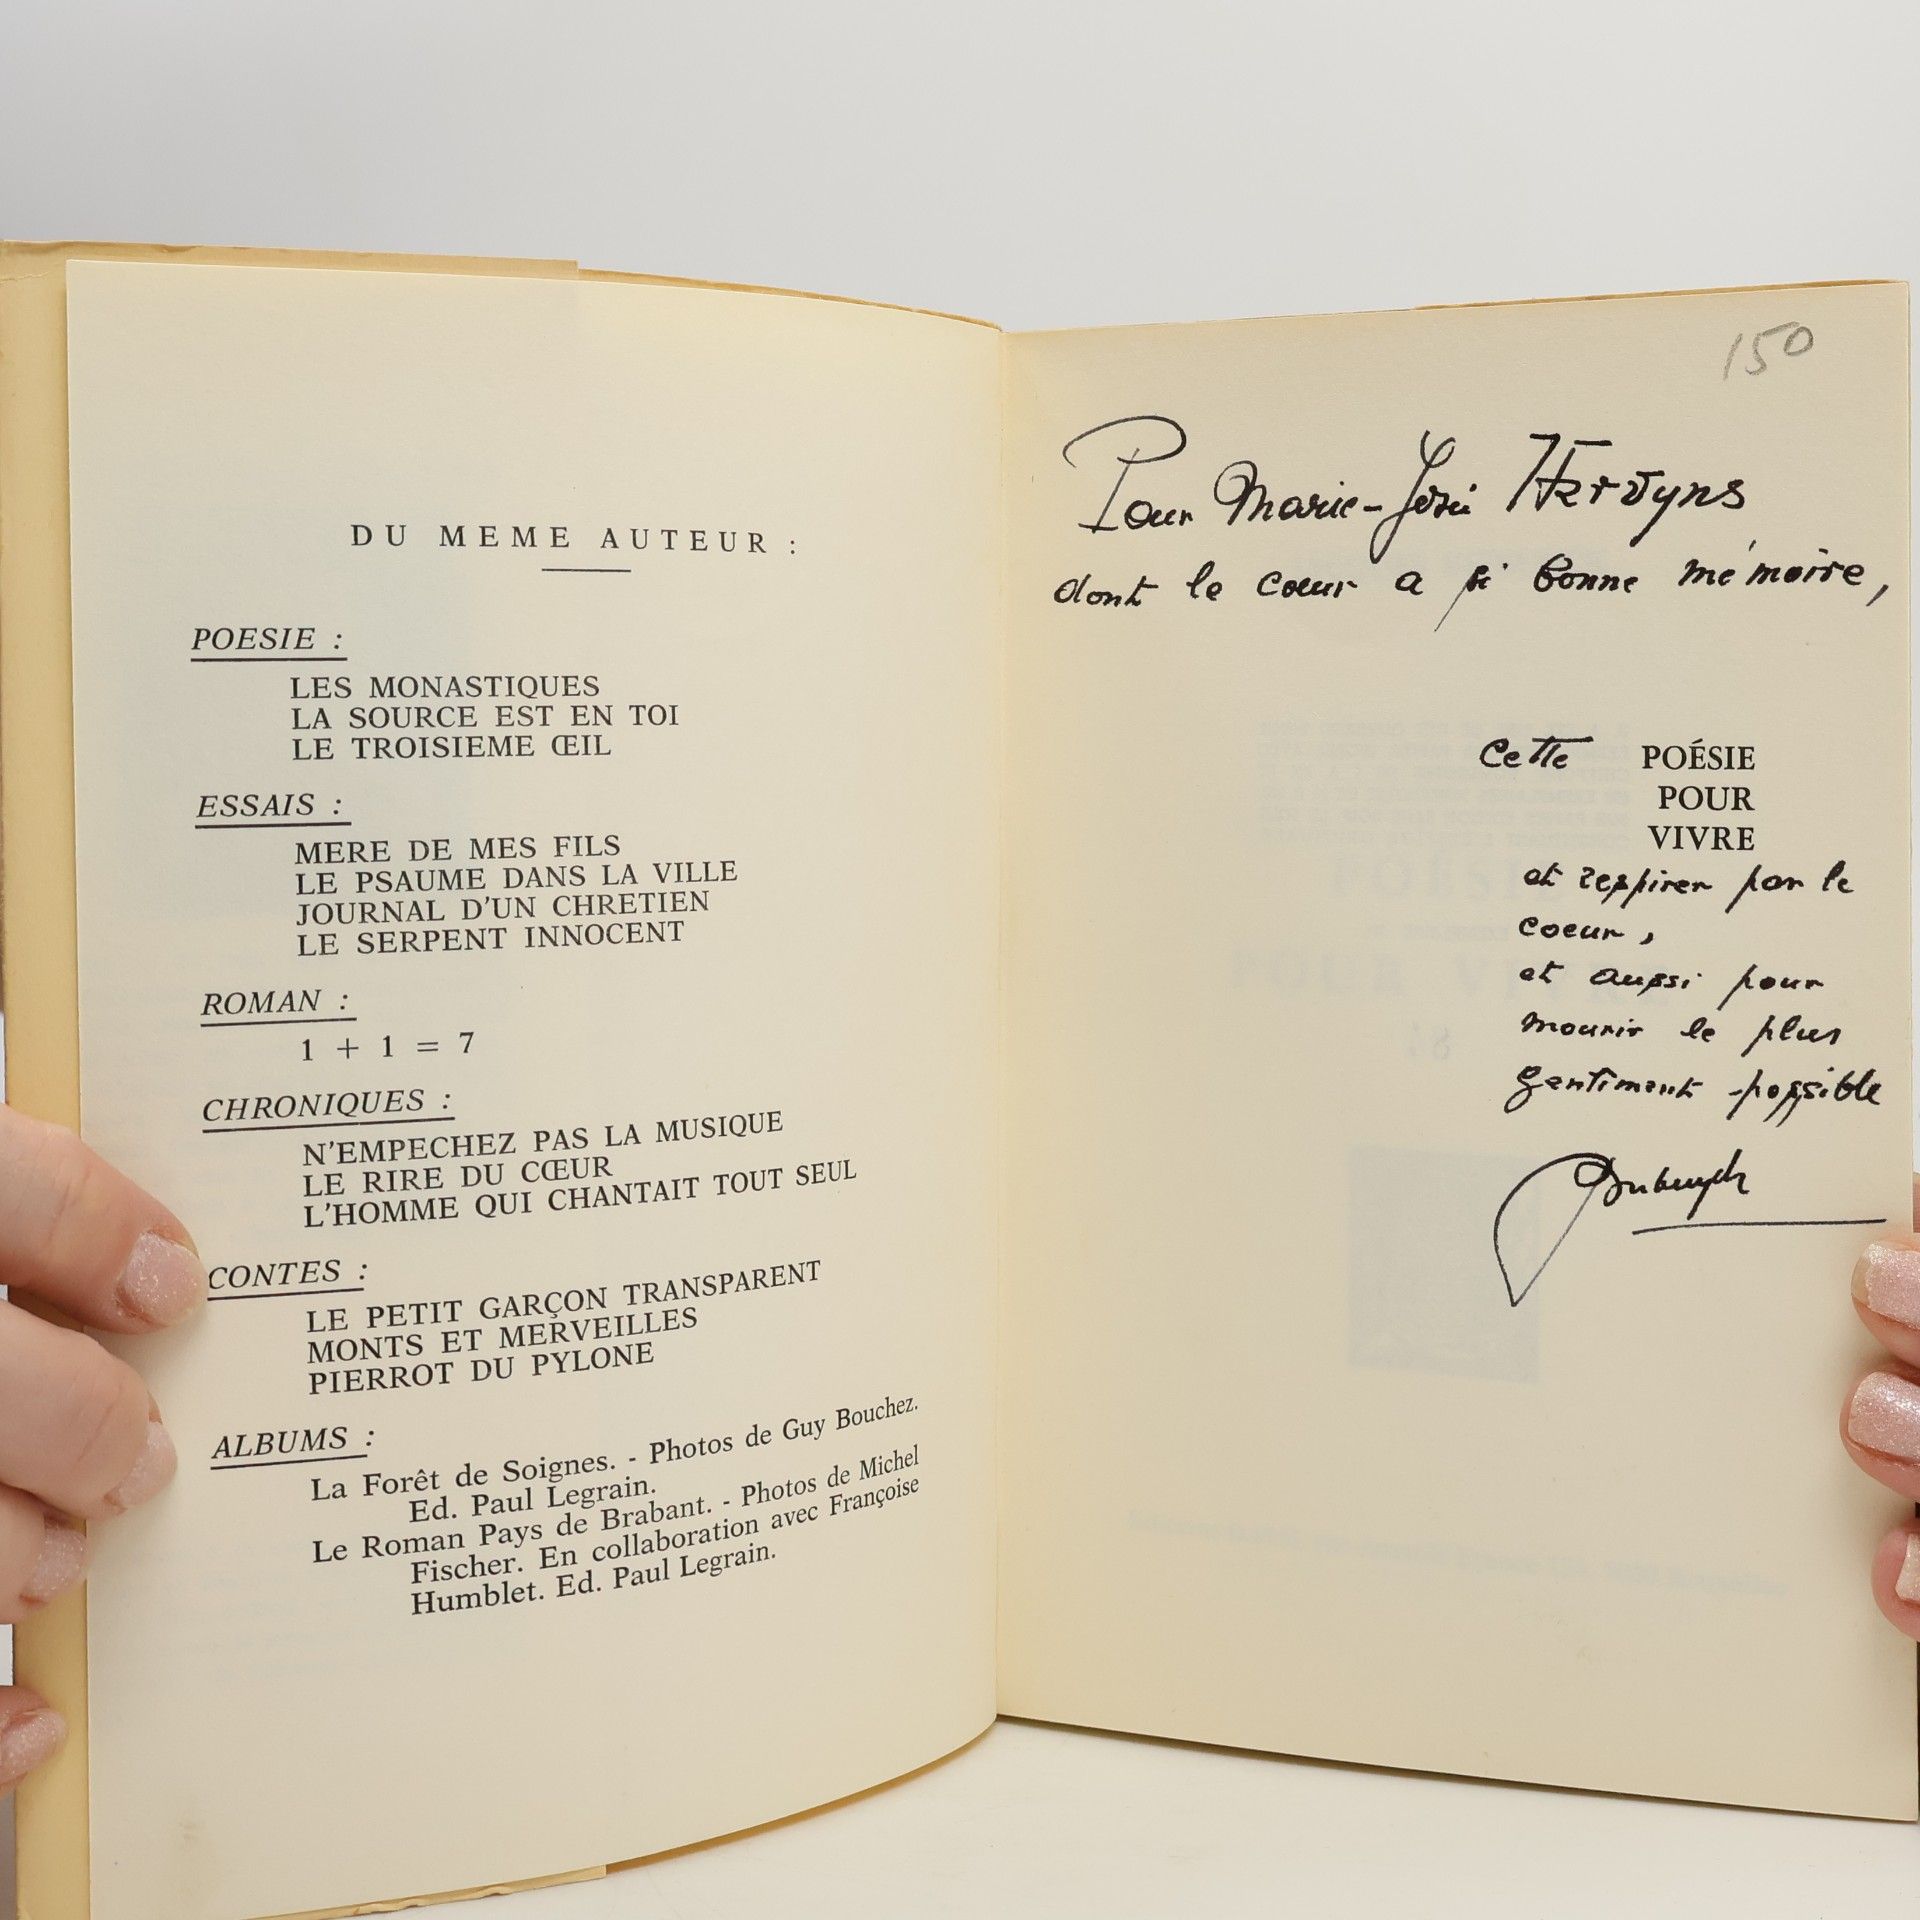 DU MEME AUTEUR :
POESIE :
LES MONASTIQUES
LA SOURCE EST EN TOI
LE TROISIEME ŒIL
ESSAIS :
MERE DE MES FILS
LE PSAUME DANS LA VILLE
JOURNAL D'UN CHRETIEN
LE SERPENT INNOCENT
ROMAN :
1 + 1 = 7
CHRONIQUES :
N'EMPECHEZ PAS LA MUSIQUE
LE RIRE DU CŒUR
L'HOMME QUI CHANTAIT TOUT SEUL
CONTES :
LE PETIT GARÇON TRANSPARENT
MONTS ET MERVEILLES
PIERROT DU PYLONE
ALBUMS :
La Forêt de Soignes. - Photos de Guy Bouchez.
Ed. Paul Legrain.
Le Roman Pays de Brabant. - Photos de Michel
Fischer. En collaboration avec Françoise
Humblet. Ed. Paul Legrain.
150
Pour Marie-José
dont le coeur a si bonne mémoire,
Cette POÉSIE
POUR
VIVRE
et respirer par le
coeur,
et aussi pour
mourir le plus
gentiment possible